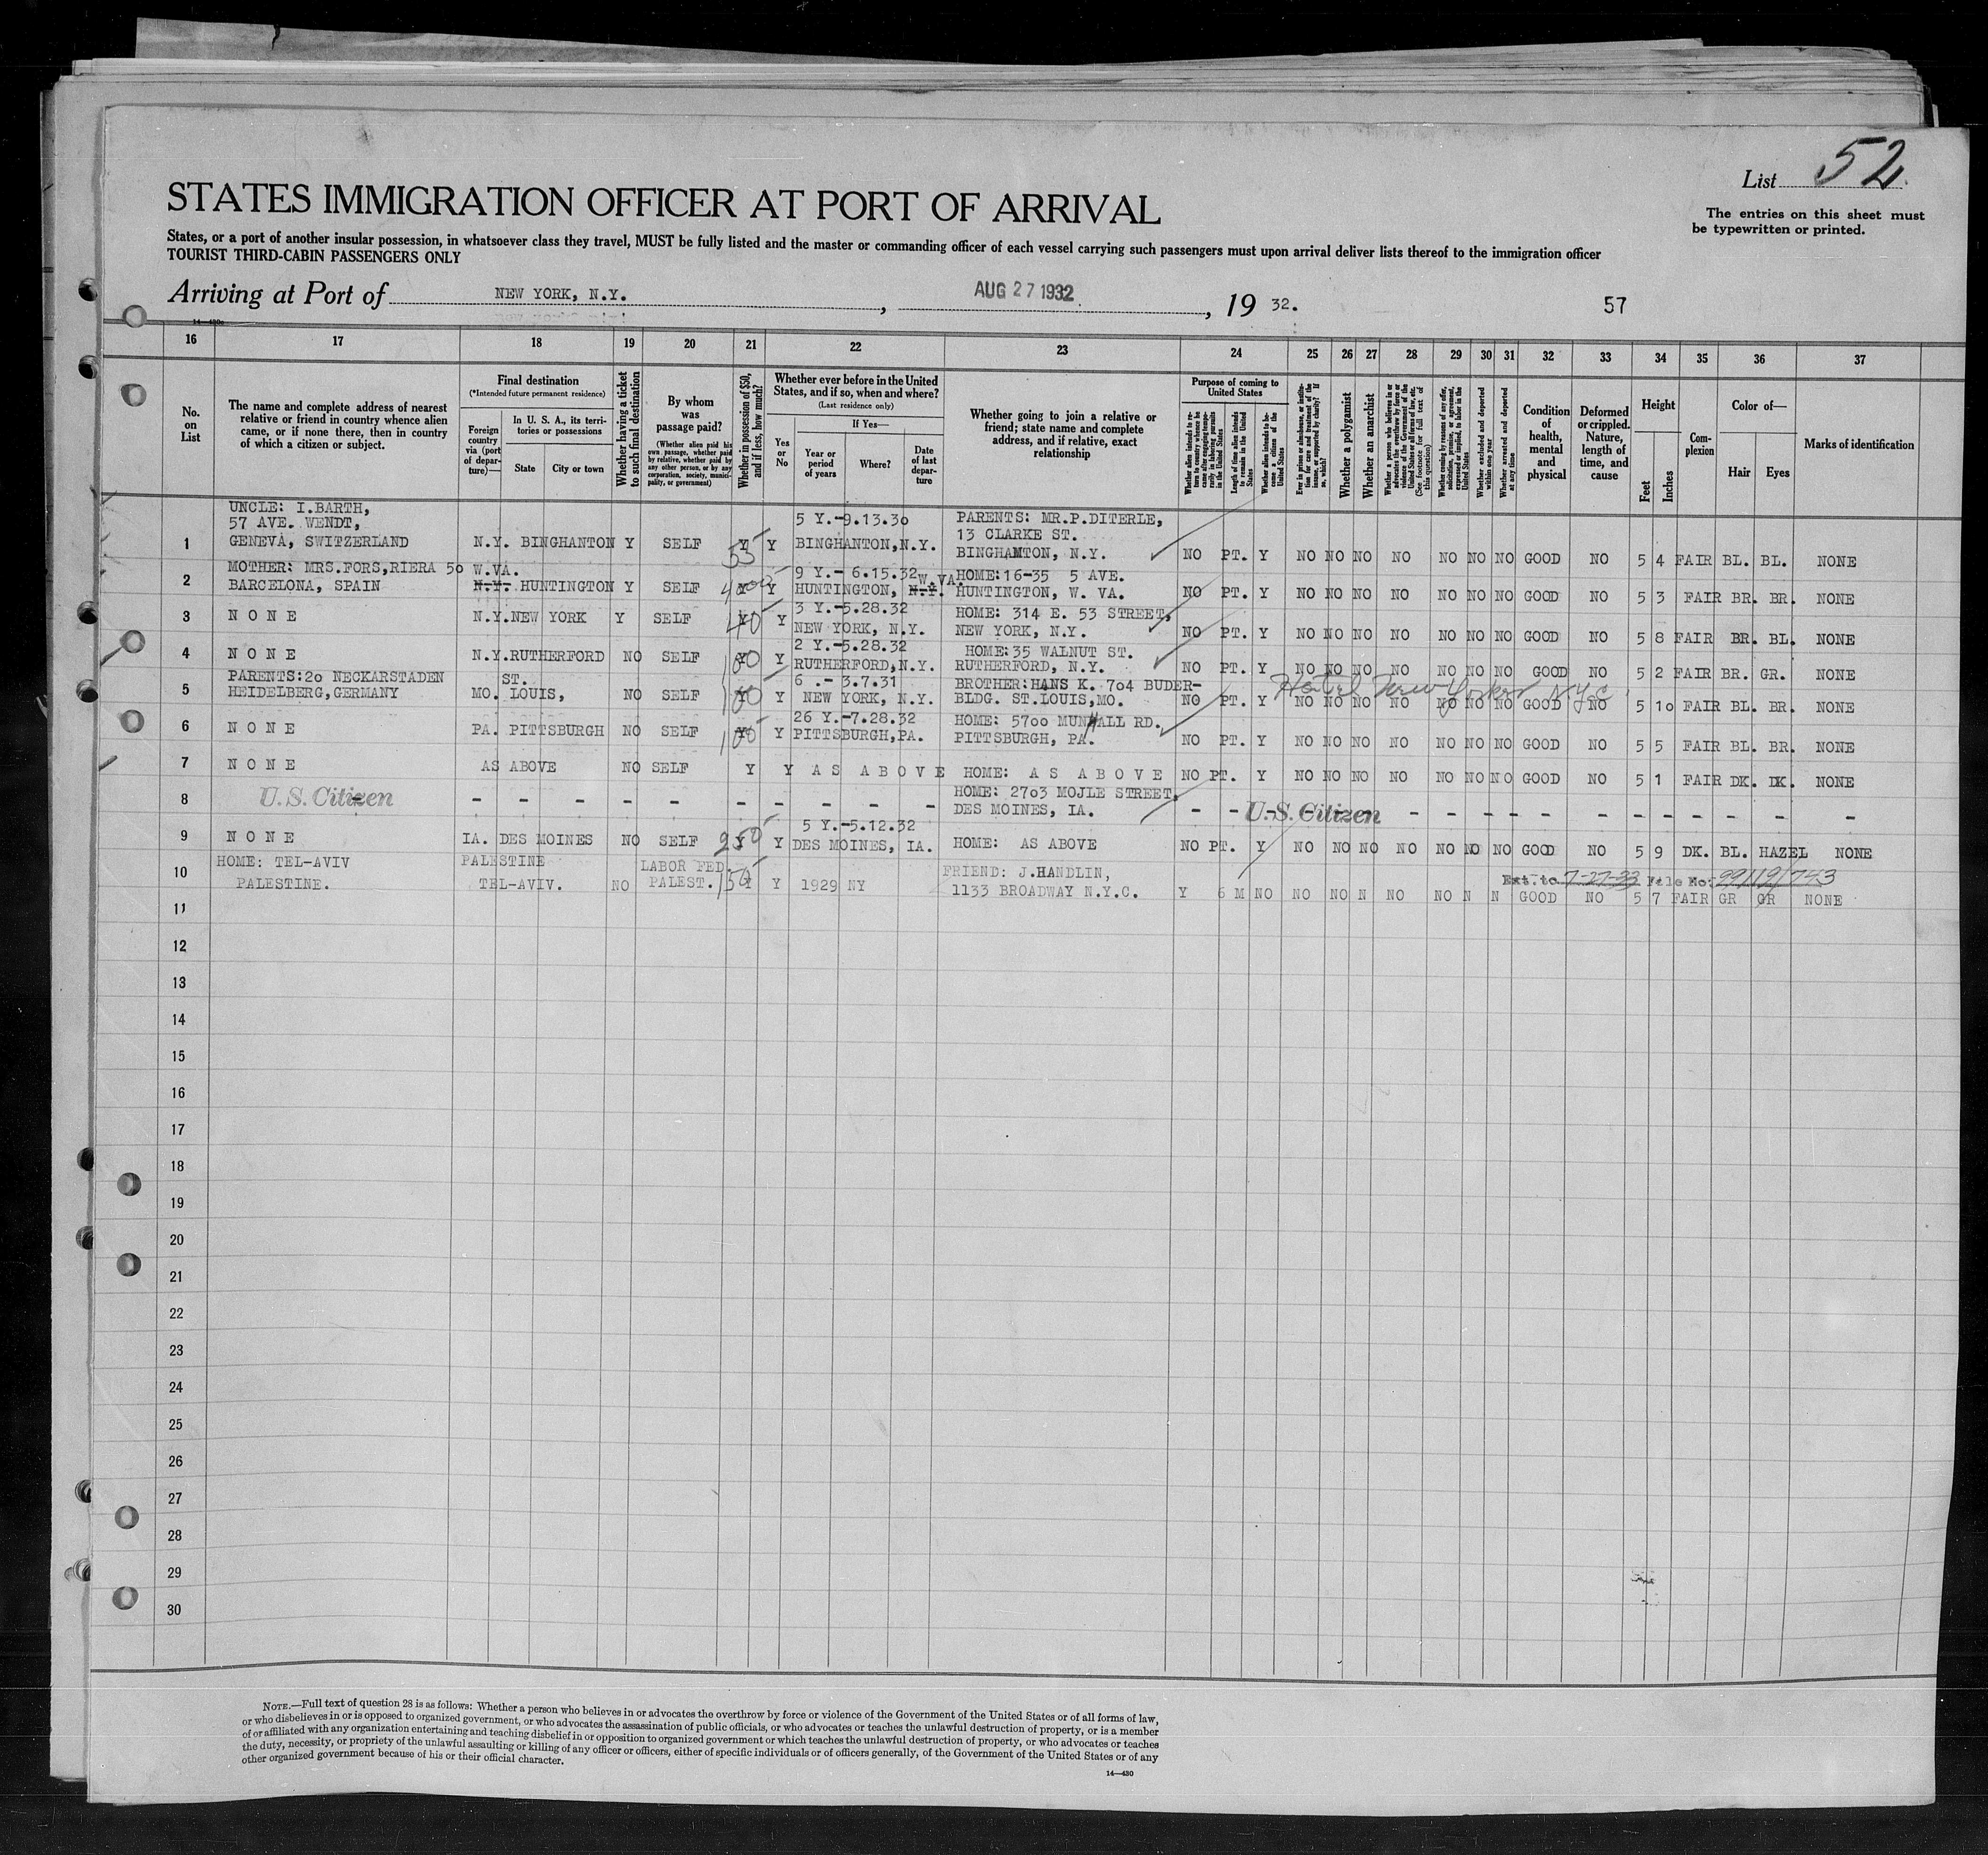 List 52
The entries on this sheet must
be typewritten or printed.
STATES IMMIGRATION OFFICER AT PORT OF ARRIVAL
States, or a port of another insular possession, in whatsoever class they travel, MUST be fully listed and the master or commanding officer of each vessel carrying such passengers must upon arrival deliver lists thereof to the immigration officer
TOURIST THIRD-CABIN PASSENGERS ONLY
Arriving at Port of NEW YORK, N.Y. , AUG 27 1932 , 19 32. 57
16 17 18 19 20 21 22 23 24 25 26 27 28 29 30 31 32 33 34 35 36 37
No. on List
The name and complete address of nearest relative or friend in country whence alien came, or if none there, then in country of which a citizen or subject.
Final destination
(*Intended future permanent residence)
Foreign country via (port of departure)—
In U. S. A., its territories or possessions
State City or town
Whether having a ticket to such final destination
By whom was passage paid?
(Whether alien paid his own passage, whether paid by relative, whether paid by any other person, or by any corporation, society, municipality, or government)
Whether in possession of $50, and if less, how much?
Whether ever before in the United States, and if so, when and where?
(Last residence only)
Yes or No
If Yes—
Year or period of years
Where?
Date of last departure
Whether going to join a relative or friend; state name and complete address, and if relative, exact relationship
Purpose of coming to United States
Length of time alien intends to remain in the United States
Whether alien intends to become a citizen of the United States
Whether a polygamist
Whether an anarchist
Whether excluded and deported within one year
Whether arrested and deported at any time
Condition of health, mental and physical
Deformed or crippled. Nature, length of time, and cause
Height
Feet Inches
Complexion
Color of—
Hair Eyes
Marks of identification
UNCLE: I.BARTH,
57 AVE. WENDT, 5 Y.-9.13.30 PARENTS: MR.P.DITERLE,
13 CLARKE ST.
1 GENEVA, SWITZERLAND N.Y. BINGHANTON Y SELF Y 55 Y BINGHANTON,N.Y. BINGHAMTON, N.Y. NO PT. Y NO NO NO NO NO NO NO GOOD NO 5 4 FAIR BL. BL. NONE
MOTHER: MRS.FORS,RIERA 50 W.VA. 9 Y.- 6.15.32 W.VA. HOME:16-35 5 AVE.
2 BARCELONA, SPAIN N.Y. HUNTINGTON Y SELF Y Y HUNTINGTON, N.Y. HUNTINGTON, W. VA. NO PT. Y NO NO NO NO NO NO NO GOOD NO 5 3 FAIR BR. BR. NONE
3 Y.-5.28.32 HOME: 314 E. 53 STREET,
3 N O N E N.Y.NEW YORK Y SELF Y 40 Y NEW YORK, N.Y. NEW YORK, N.Y. NO PT. Y NO NO NO NO NO NO NO GOOD NO 5 8 FAIR BR. BL. NONE
2 Y.-5.28.32 HOME:35 WALNUT ST.
4 N O N E N.Y.RUTHERFORD NO SELF Y 100 Y RUTHERFORD,N.Y. RUTHERFORD, N.Y. NO PT. Y NO NO NO NO NO NO NO GOOD NO 5 2 FAIR BR. GR. NONE
PARENTS:20 NECKARSTADEN ST. 6 .- 3.7.31 BROTHER:HANS K. 704 BUDER- Hotel New Yorker N.Y.C.
5 HEIDELBERG,GERMANY MO. LOUIS, NO SELF Y 100 Y NEW YORK, N.Y. BLDG. ST.LOUIS,MO. NO PT. Y NO NO NO NO NO NO NO GOOD NO 5 10 FAIR BL. BR. NONE
26 Y.-7.28.32 HOME: 5700 MUNHALL RD.
6 N O N E PA. PITTSBURGH NO SELF Y 100 Y PITTSBURGH,PA. PITTSBURGH, PA. NO PT. Y NO NO NO NO NO NO NO GOOD NO 5 5 FAIR BL. BR. NONE
7 N O N E AS ABOVE NO SELF Y Y A S A B O V E HOME: A S A B O V E NO PT. Y NO NO NO NO NO NO NO GOOD NO 5 1 FAIR DK. DK. NONE
HOME: 2703 MOJLE STREET,
8 U.S. Citizen - - - - - - - - - - DES MOINES, IA. - - U.S. Citizen - - - - - - - - - - -
5 Y.-5.12.32
9 N O N E IA. DES MOINES NO SELF Y 250 Y DES MOINES, IA. HOME: AS ABOVE NO PT. Y NO NO NO NO NO NO NO GOOD NO 5 9 DK. BL. HAZEL NONE
HOME: TEL-AVIV PALESTINE LABOR FED. FRIEND: J.HANDLIN, Ext. to 7-27-33 File No. 99/12/743
10 PALESTINE. TEL-AVIV. NO PALEST. 150 Y Y 1929 NY 1133 BROADWAY N.Y.C. Y 6 M NO NO NO N NO NO N N GOOD NO 5 7 FAIR GR GR NONE
11
12
13
14
15
16
17
18
19
20
21
22
23
24
25
26
27
28
29
30
NOTE.—Full text of question 28 is as follows: Whether a person who believes in or advocates the overthrow by force or violence of the Government of the United States or of all forms of law,
or who disbelieves in or is opposed to organized government, or who advocates the assassination of public officials, or who advocates or teaches the unlawful destruction of property, or is a member
of or affiliated with any organization entertaining and teaching disbelief in or opposition to organized government or which teaches the unlawful destruction of property, or who advocates or teaches
the duty, necessity, or propriety of the unlawful assaulting or killing of any officer or officers, either of specific individuals or of officers generally, of the Government of the United States or of any
other organized government because of his or their official character.
14—430